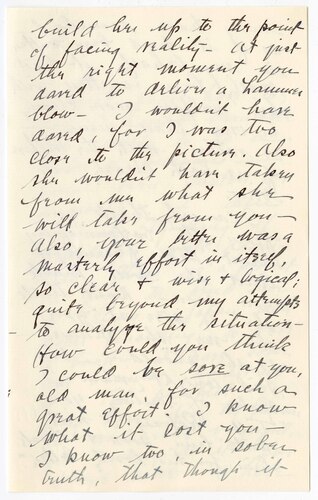 build her up to the point
of facing reality - at just
the right moment you
dared to deliver a hammer
blow - I wouldn't have
dared, for I was too
close to the picture. Also
she wouldn't have taken
from me what she
will take from you -
Also, your letter was a
masterly effort in itself,
so clear + wise + logical;
quite beyond my attempts
to analyze the situation -
How could you think
I could be sore at you,
old man, for such a
great effort. I know
what it cost you -
I know too, in sober
truth, that though it